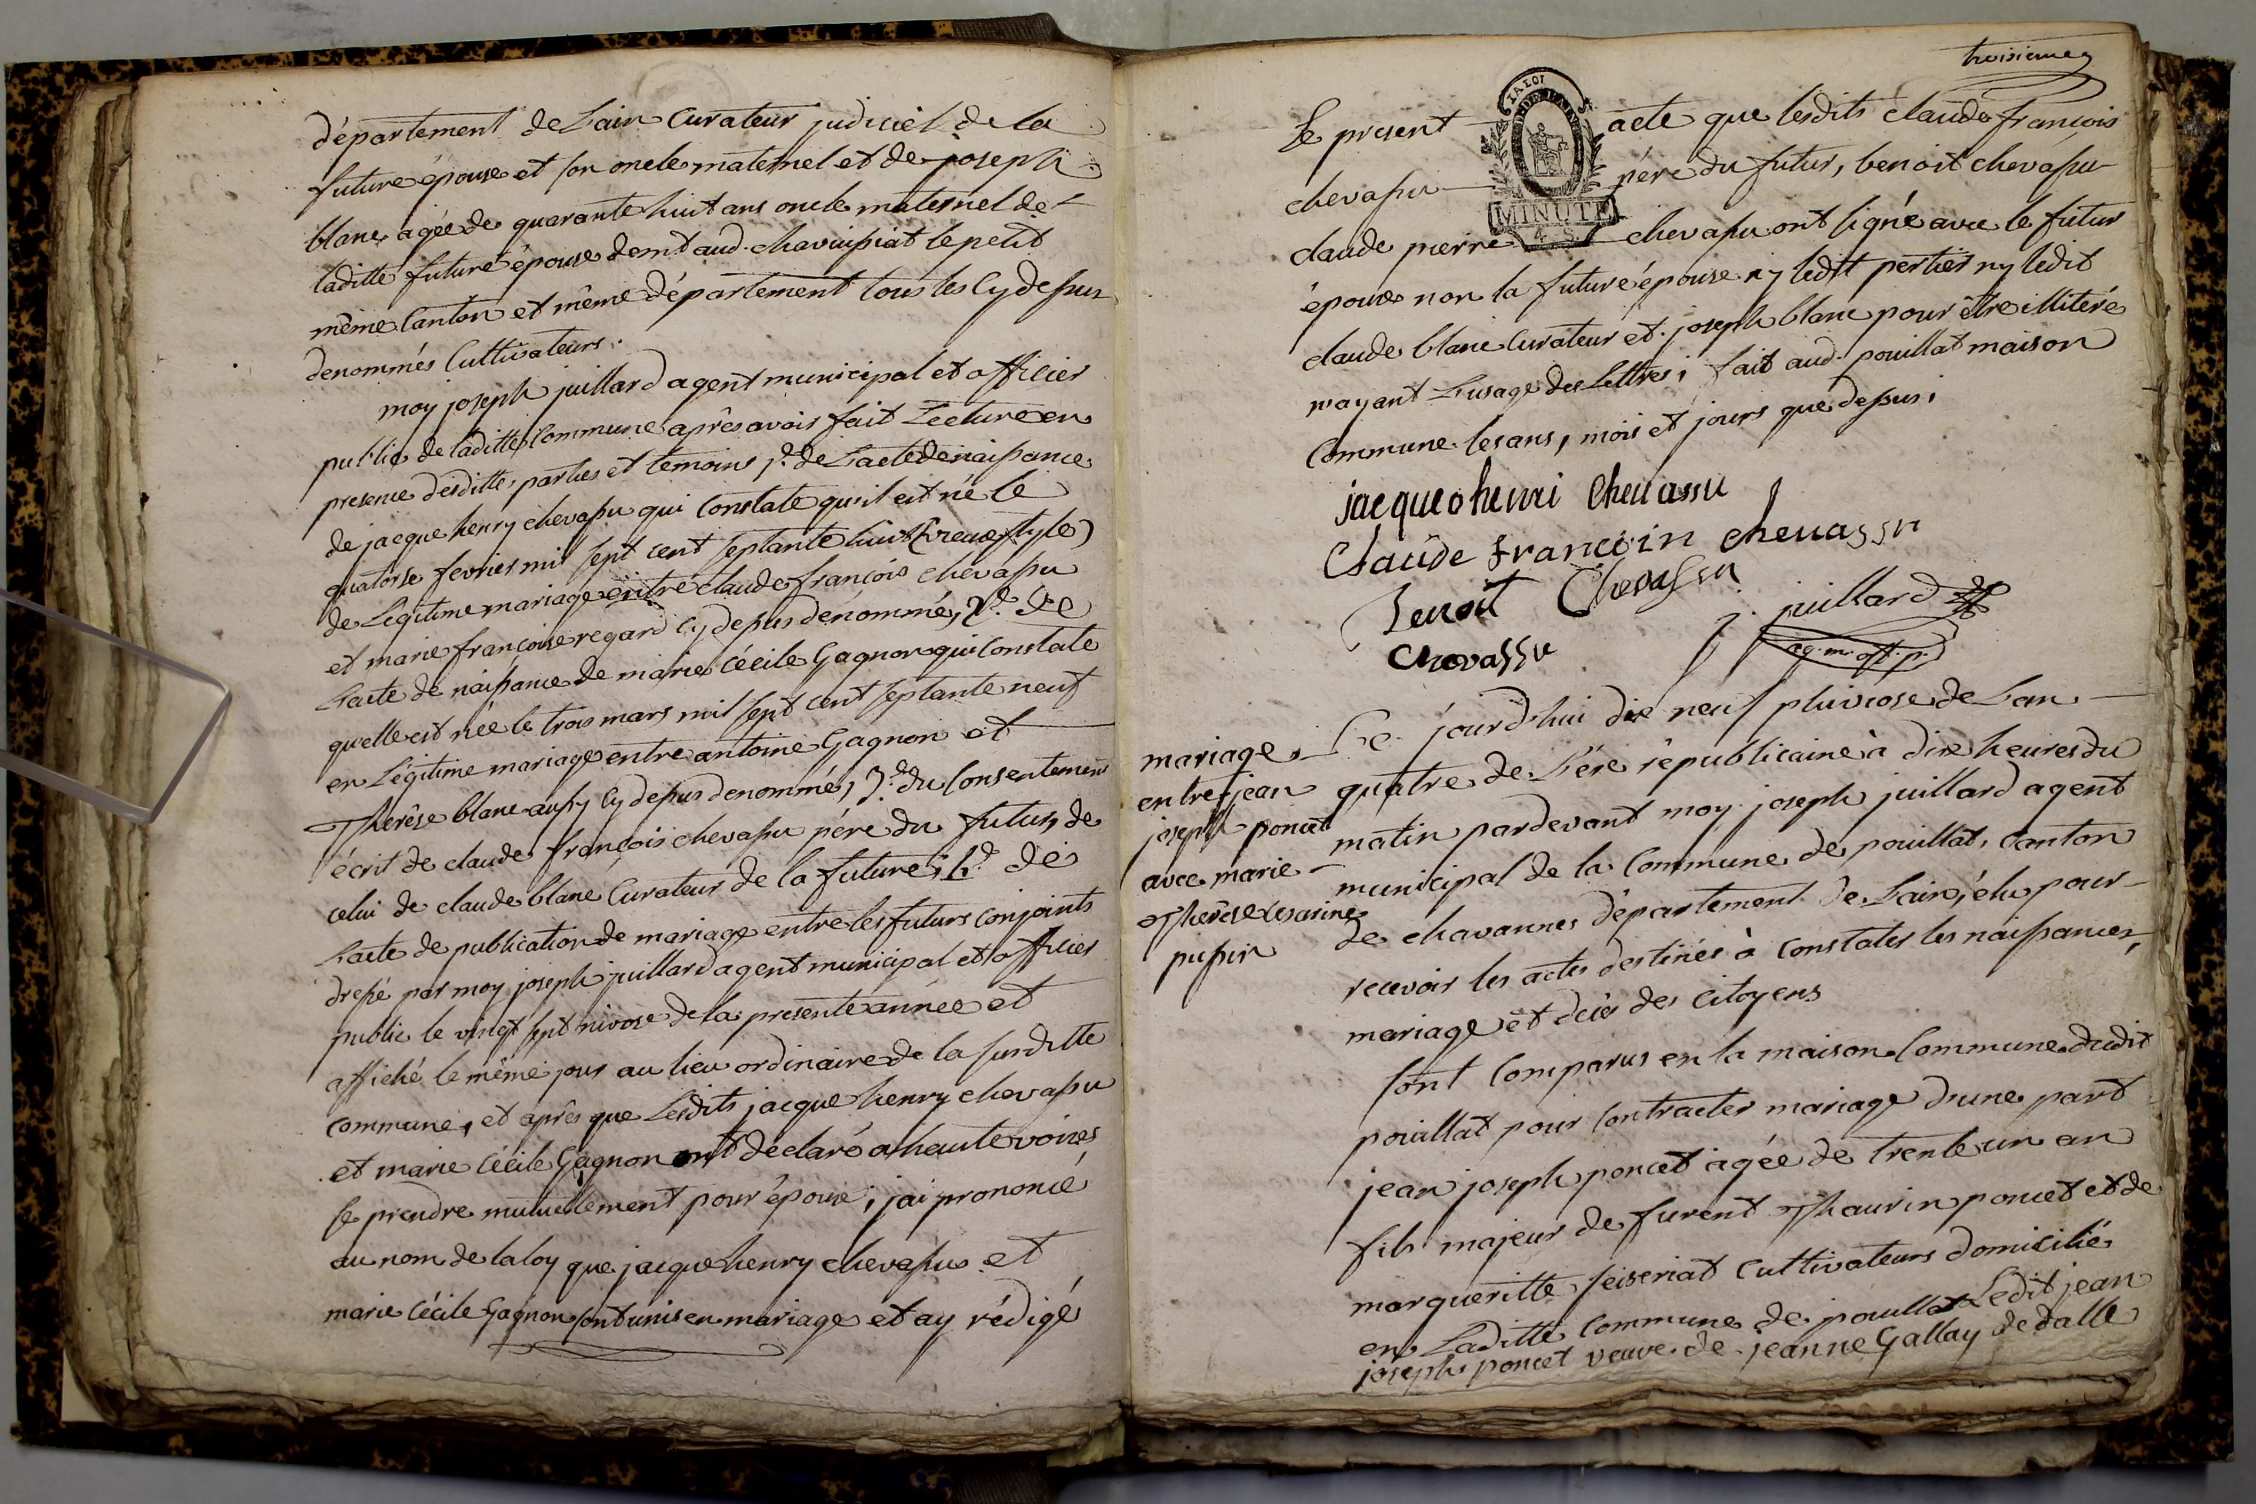 département de Lain Curateur judiciel de la
future épouse et son oncle maternel et de joseph
blanc agée de quarante huit ans oncle maternel de
laditte future épouse demt aud. chavuissiat le petit
même Canton et même département tous les Cy dessus
denommés Cultivateurs.
moy joseph juillard agent municipal et officier
public de laditte Commune après avoir fait Lecture en
presence desditte parties et temoins 1º. de Lacte de naissance
de jacque henry chevassu qui Constate qu'il est né le
quatorse fevrier mil sept cent septante huit (vieux style)
de Légitime mariage entre claude françois chevassu
et marie françoise regard cy dessus denommé, 2d. de
Lacte de naissance de marie Cécile Gagnon qui Constate
quelle est née le trois mars mil sept cent septante neuf
en Légitime mariage entre antoine Gagnon et
Therêse blanc aussy cy dessus denommé, 3e. du Consentement
écrit de claude françois chevassu pére du futur, de
celui de claude blanc Curateur de la future, 4d. de
Lacte de publication de mariage entre les futurs conjoints
dressé par moy joseph juillard agent municipal et officier
public le vingt sept nivose de la presente année et
affiché le même jour au lieu ordinaire de la susditte
commune, et après que Lesdits jacque henry chevassu
et marie Cécile Gagnon ont déclaré a haute voixes
se prendre mutuellement pour épouse, jai prononcé
au nom de la loy que jacque henry chevassu et
marie Cécile Gagnon sont unis en mariage et ay rédigé
troisieme
Le present acte que lesdits claude françois
chevassu pére du futur, benoit chevassu
claude pierre chevassu ont signé avec le futur
époux non la future épouse ny ledit pertier ny ledit
claude blanc Curateur et joseph blanc pour être illiteré
n'ayant Lusage des Lettres, fait aud. pouillat maison
Commune les ans, mois et jours que dessus,
LA LOI
MINUTE
4. S.
jacque henri Chevassu
Claude françoin chevassu
benoit Chevassu
Chevassu
j. juillard
ag. m. off. p.
mariage
entre jean
joseph poncet
avec marie
Therêse Cesarine
pupin
Ce jourd'hui dix neuf pluviose de Lan
quatre de Lére républicaine à dix heures du
matin pardevant moy joseph juillard agent
municipal de la Commune de pouillat, Canton
de chavannes département de Lain, élu pour
recevoir les actes destinés à Constater les naissances,
mariage et décés des Citoyens
sont Comparus en la maison Commune dudit
pouillat pour Contracter mariage dune part
jean joseph poncet agée de trente un an
fils majeur de furent Thaurin poncet et de
margueritte seiseriat Cultivateurs domicilié
en Laditte Commune de pouillat Ledit jean
joseph poncet veuve de jeanne Gallay de dalle